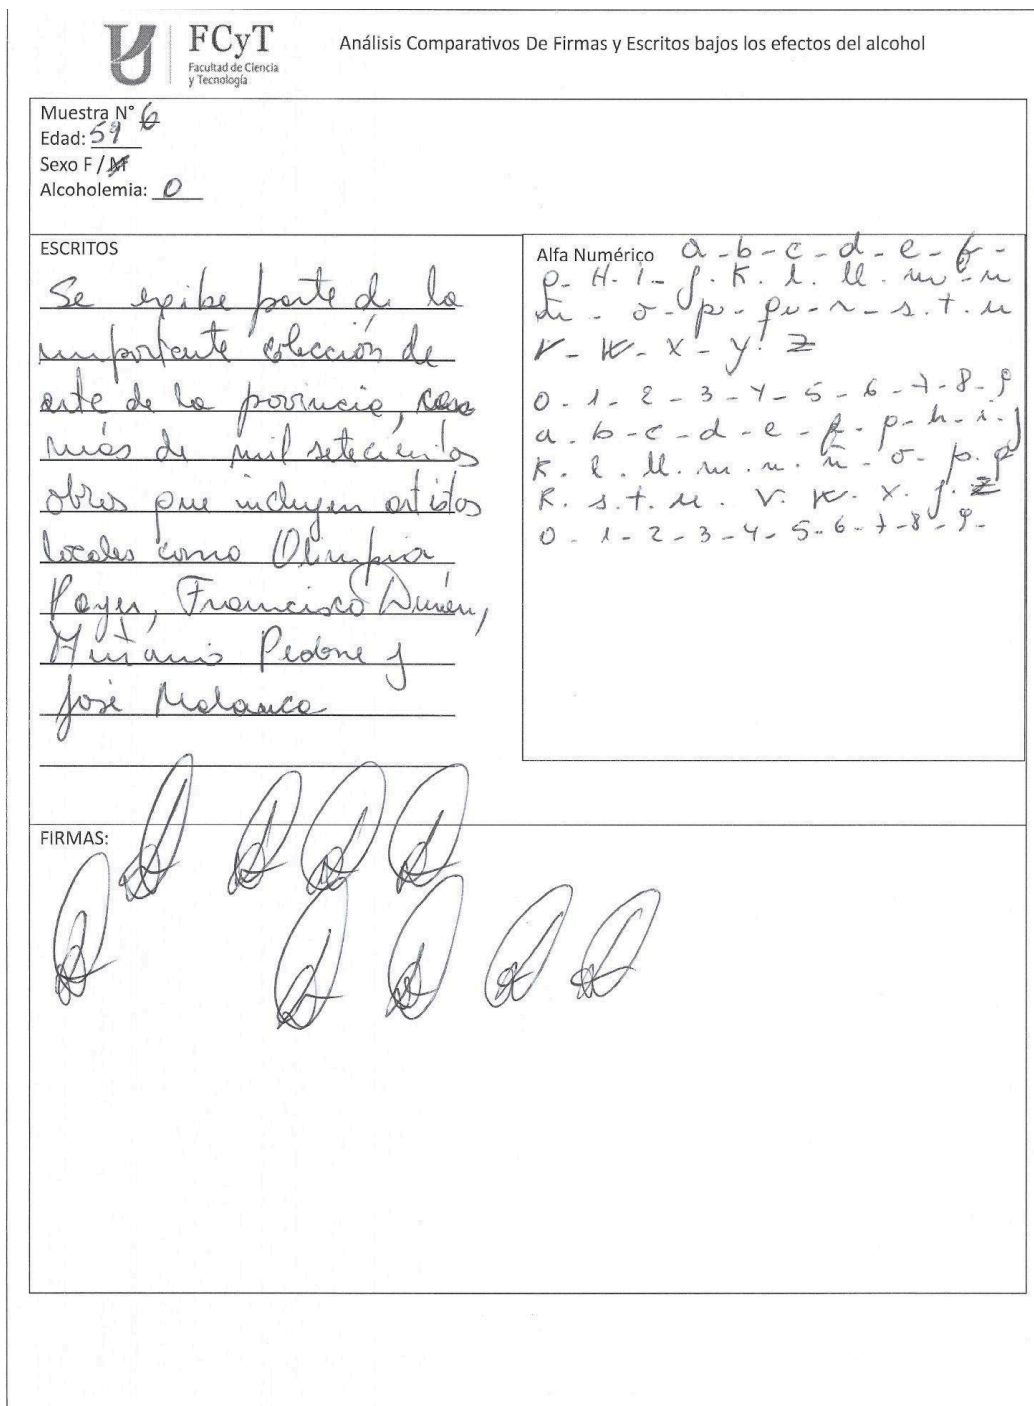 FCyT
Facultad de Ciencia
y Tecnología
Análisis Comparativos De Firmas y Escritos bajos los efectos del alcohol
Muestra N° 6
Edad: 59
Sexo F / M
Alcoholemia: 0
ESCRITOS
Se exibe parte de la
importante colección de
arte de la provincia, con
más de mil setecientos
obras que incluyen artistas
locales como Olimpia
Payer, Francisco Durán,
Miñanis Pedone y
José Malanca
Alfa Numérico a - b - c - d - e - f -
g - H - i - j - K - l - ll - m - n
ñ - o - p - qu - r - s - t - u
V - W - X - y - Z
0 - 1 - 2 - 3 - 4 - 5 - 6 - 7 - 8 - 9
a - b - c - d - e - f - g - h - i - j
K - l - ll - m - n - ñ - o - p - q
R - s - t - u - V - W - X - y - Z
0 - 1 - 2 - 3 - 4 - 5 - 6 - 7 - 8 - 9 -
FIRMAS: